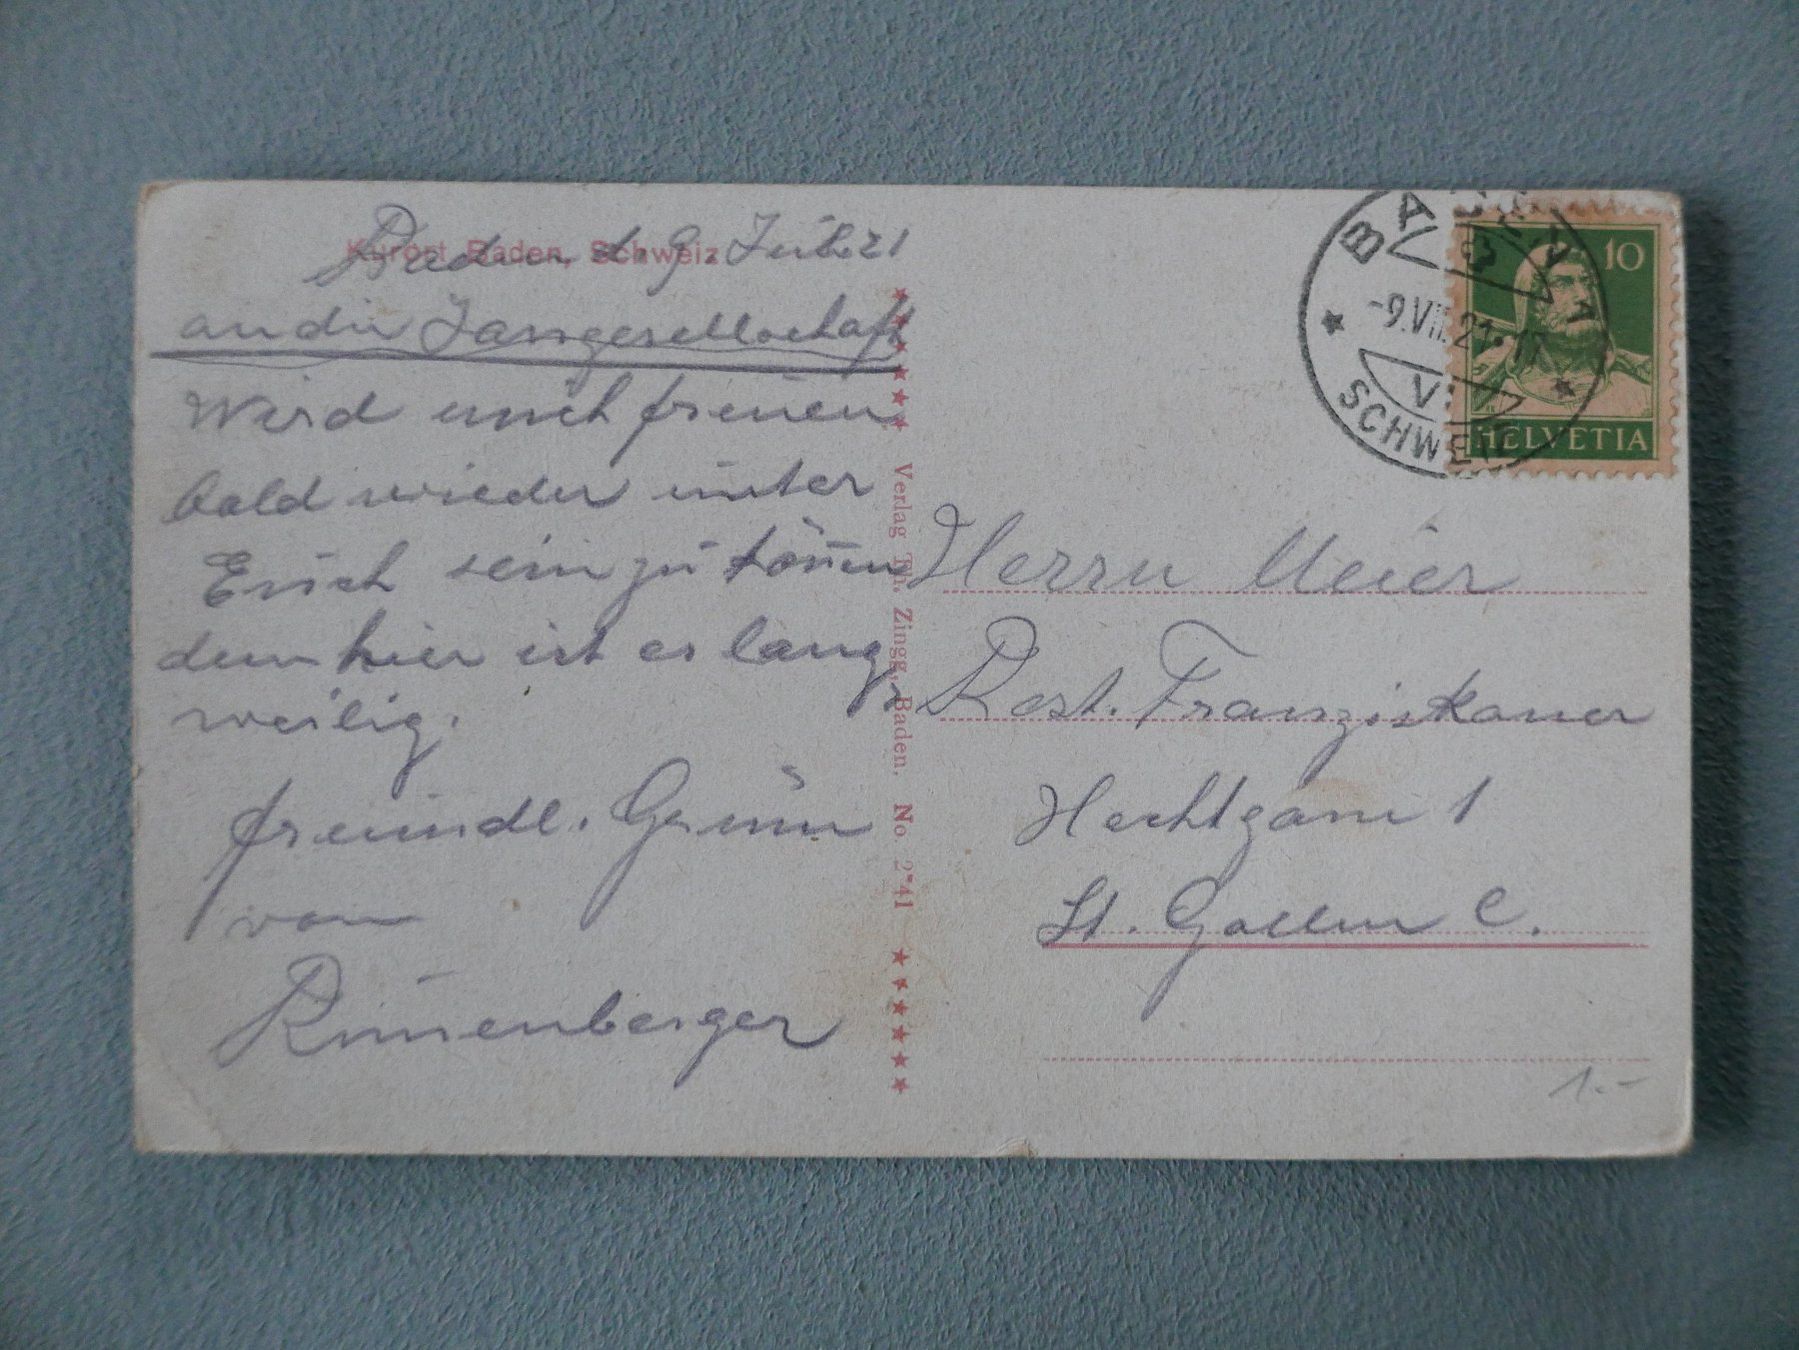 Kurort Baden, Schweiz
Baden d. 9. Juli 21
an die Jassgesellschaft
Wird mich freuen
bald wieder unter
Euch sein zu können
denn hier ist es lang-
weilig.
freundl. Gruss
von
Verlag Th. Zingg, Baden. No. 2741
BADEN
-9.VII.21.-17
V
SCHWEIZ
10
HELVETIA
Herrn Meier
Rest. Franziskaner
Hechtgasse 1
St. Gallen C.
1.-